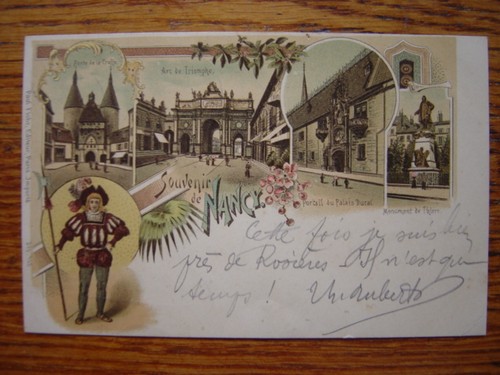 Porte de la Craffe
Arc de Triomphe
Portail du Palais Ducal
Monument de Thiers
Souvenir
de NANCY
Cette fois je suis bien
près de Rosières. Il n'est que
temps !